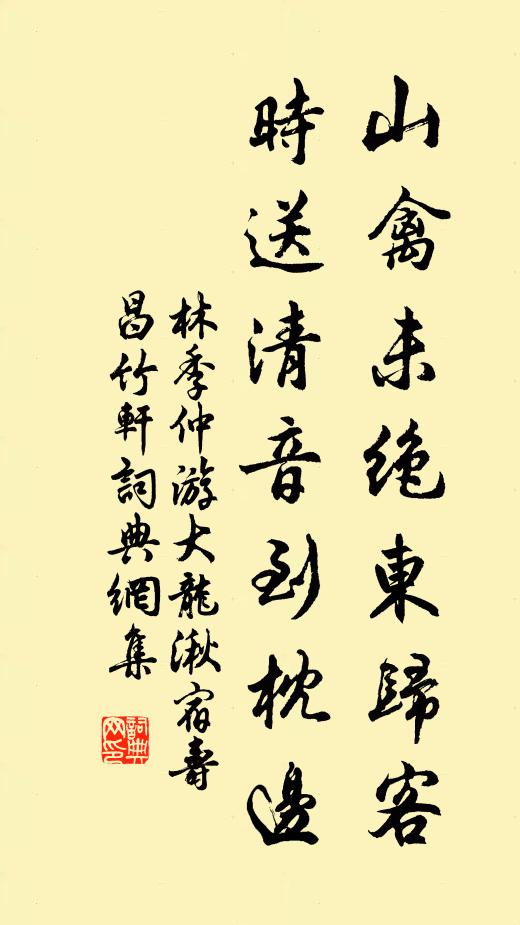 山禽未絶東歸客
時送清音到枕邊
林季仲游大龍湫宿壽
昌竹軒詞典網集
詞典網印